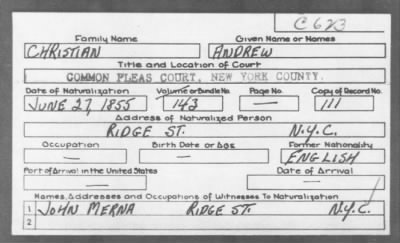 C 623
Family Name Given Name or Names
CHRISTIAN ANDREW
Title and Location of Court
COMMON PLEAS COURT, NEW YORK COUNTY.
Date of Naturalization Volume or Bundle No. Page No. Copy of Record No.
JUNE 27, 1855 143 — 111
Address of Naturalized Person
RIDGE ST. N.Y.C.
Occupation Birth Date or Age Former Nationality
— — ENGLISH
Port of Arrival in the United States Date of Arrival
— —
Names, Addresses and Occupations of Witnesses To Naturalization
1 JOHN MERNA RIDGE ST. N.Y.C.
2